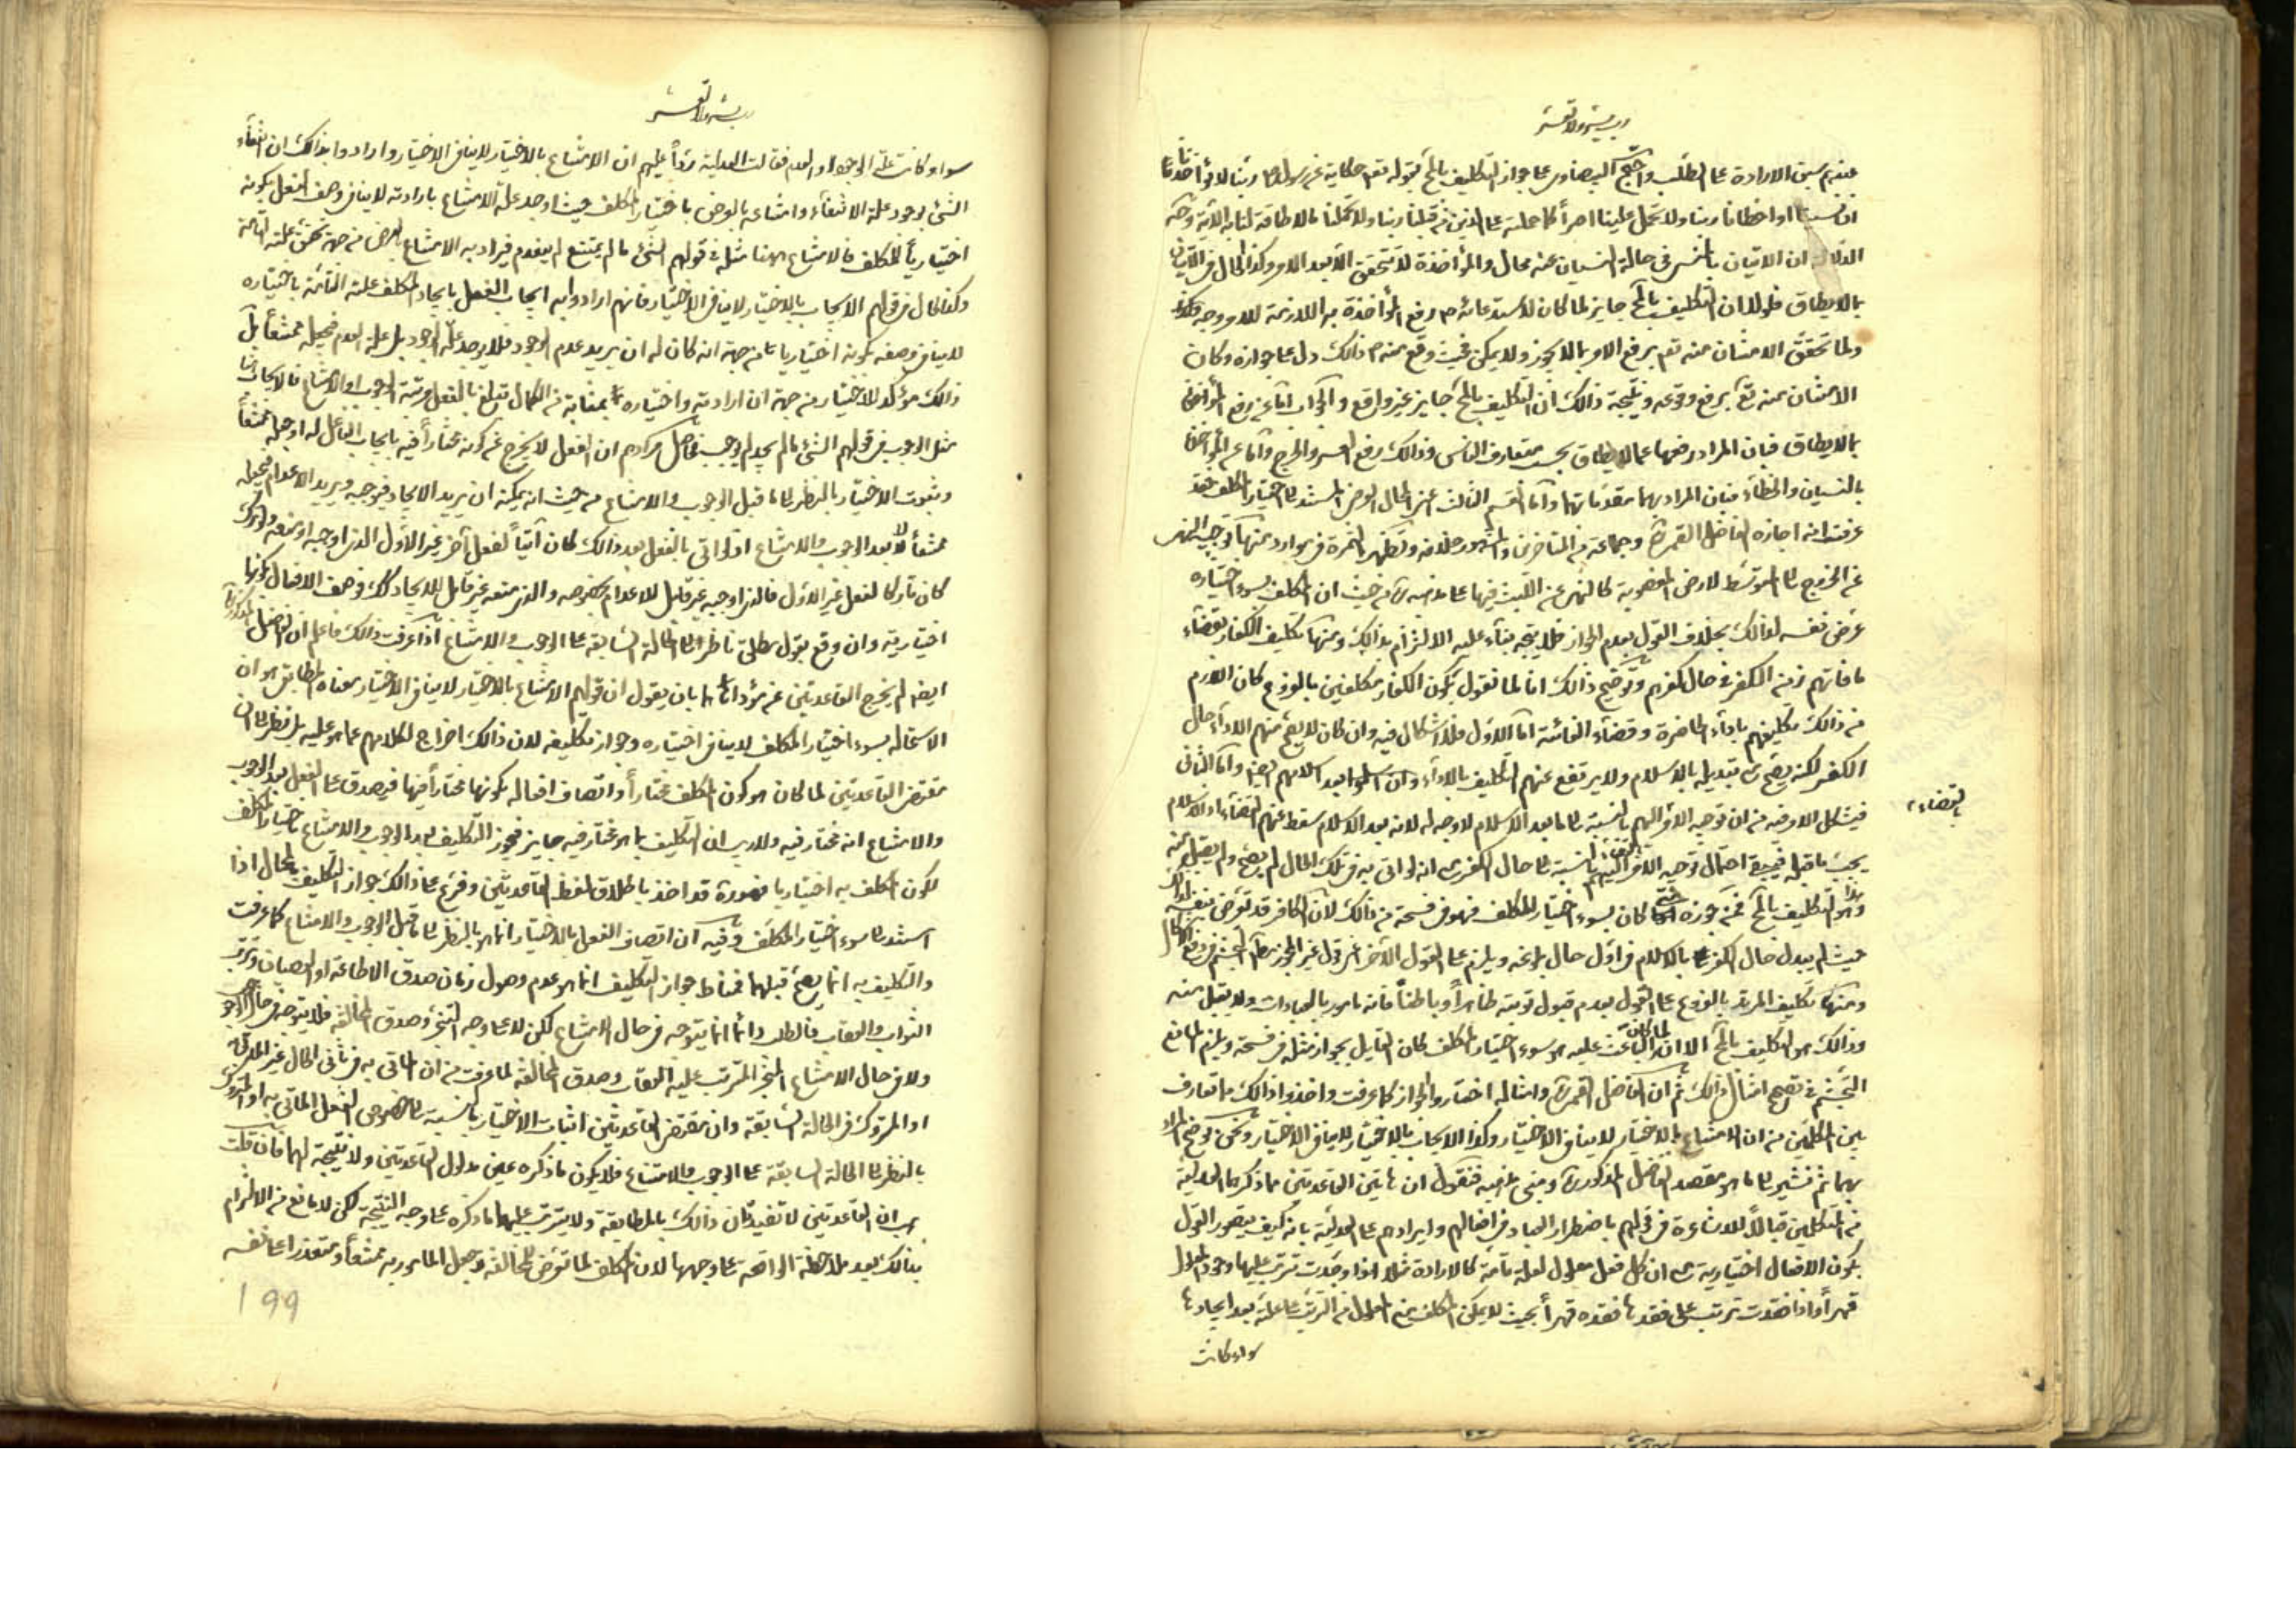 رب یسر ولا تعسر
عندهم سبق الارادة على الطلب واحتج البیضاوی على جواز التکلیف بالمح بقوله تعم حکایة عن رسوله ص ربنا لا تؤاخذنا
ان نسینا او اخطانا ربنا ولا تحمل علینا اصراً کما حملته على الذین من قبلنا ربنا ولا تحملنا ما لا طاقة لنا به الایة وجه
الدلالة ان الاتیان بالمنسی فی حالة النسیان عنه محال والمؤاخذة لا تتحقق الا بعد الامر وکذا الحال فی الاتیان
بما لا یطاق فلولا ان التکلیف بالمح جایز لما کان لاستدعائه ص رفع المؤاخذة به اللازمة للامر وجه
ولما تحقق الامتنان منه تعم برفع الامر بما لا یجوز ولا یمکن فحیث وقع منه ص ذالک دل على جوازه وکان
الامتنان منه تع برفع وقوعه ونتیجة ذالک ان التکلیف بالمح جایز غیر واقع والجواب اما عن رفع المؤاخذة
بما لا یطاق فبان المراد رفعها عما لا یطاق بحسب متعارف الناس وذالک رفع العسر والحرج واما عن المؤاخذة
بالنسیان والخطاء فبان المراد بهما مقدماتهما واما القسم الثالث اعنی المحال العرضی المستند الى اختیار المکلف فقد
عرفت انه اجازه الفاضل القمی ره وجماعة من المتاخرین والمشهور خلافه وتظهر الثمرة فی موارد منها توجیه النهی
عن الخروج الى المتوسط لارض المغصوبة کالنهی عن اللبث فیها على مذهبه ره من حیث ان المکلف بسوء اختیاره
عرض نفسه لذالک بخلاف القول بعدم الجواز فلا یتجه بناء علیه الالتزام بذالک ومنها تکلیف الکفار بقضاء
ما فاتهم زمن الکفر فی حال کفرهم وتوضیح ذالک انا لما نقول بکون الکفار مکلفین بالفروع کان اللازم
من ذالک تکلیفهم باداء الحاضرة وقضاء الفائتة اما الاول فلا اشکال فیه وان کان لا یصح منهم الاداء حال
الکفر لکنه یصح مع تبدیله بالاسلام ولا یرتفع عنهم التکلیف بالاداء وان اسلموا بعد اسلامهم ایضا واما الثانی
فیشکل الامر فیه من ان توجیه الامر الیهم بالنسبة الى ما بعد الاسلام لا وجه له لانه بعد الاسلام سقط عنهم القضاء اذ الاسلام
بالقضاء
یجب ما قبله فیبقى احتمال توجیه الامر الیهم بالنسبة الى حال الکفر مع انه لو اتى به فی تلک الحال لم یصح ولم یقبل منه
وهذا هو التکلیف بالمح فمن جوزه حتى کان بسوء اختیار المکلف فهو فی فسحة من ذالک لان الکافر قد تعرض بنفسه
حیث لم یبدل حال الکفر بالاسلام فی اول حال بلوغه ویلزم على القول الاخر اعنی قول غیر المجوز مط التجشم فی دفع الاشکال
ومنها تکلیف المرتد بالفروع على القول بعدم قبول توبته ظاهراً وباطناً فانه مامور بالعبادات ولا یقبل منه
وذالک هو التکلیف بالمح الا ان الباعث علیه لما کان هو سوء اختیار المکلف کان القایل بجواز مثله فی فسحة ویلزم المانع
التجشم فی تصحیح امثال ذالک ثم ان الفاضل القمی ره وامثاله اختاروا الجواز کما عرفت واخذوا ذالک مما تعارف
بین المتکلمین من ان الامتناع بالاختیار لا ینافی الاختیار وکذا الایجاب بالاختیار لا ینافی الاختیار ونحن نوضح المراد
بهما ثم نشیر الى ما هو مقصد الفاضل المذکور ره ومبنى مذهبه فنقول ان هاتین القاعدتین مما ذکرها العدلیة
من المتکلمین قبالاً للاشاعرة فی قولهم باضطرار العباد فی افعالهم وایرادهم على العدلیة بانه کیف یتصور القول
بکون الافعال اختیاریة مع ان کل فعل معلول لعلة تامة کالارادة مثلا اذا وجدت ترتب علیها وجود المعلول
قهراً واذا فقدت ترتب على فقدها فقده قهراً بحیث لا یمکن المکلف منع المعلول من الترتب على علته بعد ایجادها
سواء کانت
رب یسر ولا تعسر
سواء کانت علة الوجود او العدم فقالت العدلیة رداً علیهم ان الامتناع بالاختیار لا ینافی الاختیار وارادوا بذالک ان انتفاء
الشئ بوجود علة الانتفاء وامتناعه بالعرض باختیار المکلف حیث اوجد علة الامتناع بارادته لا ینافی وصف الفعل بکونه
اختیاریاً للمکلف فالامتناع ههنا مثله فی قولهم الشئ ما لم یمتنع لم یعدم فیراد به الامتناع بالعرض من جهة تحقق علته التامة
وکذا الحال فی قولهم الایجاب بالاختیار لا ینافی الاختیار فانهم ارادوا به ایجاب الفعل بایجاد المکلف علته التامة باختیاره
لا ینافی وصفه بکونه اختیاریا من جهة انه کان له ان یرید عدم الوجود فلا یوجد علة الوجود بل علة العدم فیجعله ممتنعاً بل
ذالک مؤکد للاختیار من جهة ان ارادته واختیاره بمثابة من الکمال تبلغ بالفعل مرتبة الوجوب او الامتناع فالایجاب هنا
مثل الوجوب فی قولهم الشئ ما لم یجب لم یوجد فحاصل مرادهم ان الفعل لا یخرج عن کونه مختاراً فیه بایجاب الفاعل له او جعله ممتنعاً
وثبوت الاختیار بالنظر الى ما قبل الوجوب والامتناع من حیث انه یمکنه ان یرید الایجاد فیوجبه ویرید الاعدام فیجعله
ممتنعاً لا بعد الوجوب والامتناع اذ لو اتى بالفعل بعد ذالک کان آتیاً لفعل آخر غیر الاول الذی اوجبه او منعه ولو ترک
کان تارکا لفعل غیر الاول فالذی اوجبه غیر قابل للاعدام بخصوصه والذی منعه غیر قابل للایجاد کک فوصف الافعال بکونها
اختیاریة وان وقع بقول مطلق ناظر الى الحالة السابقة على الوجوب والامتناع اذا عرفت ذالک فاعلم ان الفاضل المذکور ره
ایضا لم یخرج القاعدتین عن مؤداهما بان یقول ان قولهم الامتناع بالاختیار لا ینافی الاختیار معناه المطابقی هو ان
الاستحالة بسوء اختیار المکلف لا ینافی اختیاره وجواز تکلیفه لان ذالک اخراج لکلامهم عما هو علیه بل نظر الى ان
مقتضى القاعدتین لما کان هو کون المکلف مختاراً واتصاف افعاله بکونها مختاراً فیها فیصدق على الفعل بعد الوجوب
والامتناع انه مختار فیه ولا ریب ان التکلیف بما هو مختار فیه جایز فیجوز التکلیف بعد الوجوب والامتناع باختیار المکلف
لکون المکلف به اختیاریا فهو ره قد اخذ باطلاق لفظ القاعدتین وفرع على ذالک جواز التکلیف بالمحال اذا
استند الى سوء اختیار المکلف وفیه ان اتصاف الفعل بالاختیار انما هو بالنظر الى ما قبل الوجوب والامتناع کما عرفت
والتکلیف به انما یصح قبلهما فمناط جواز التکلیف انما هو عدم وصول زمان صدق الاطاعة او العصیان وترتب
الثواب والعقاب فالطلب دائما انما یتوجه فی حال الامتناع لکن لا على وجه التنجز وصدق المخالفة فلا یتوجه فی حال الوجوب
ولا فی حال الامتناع المنجز المترتب علیه العقاب وصدق المخالفة لما عرفت من ان الماتى به فی ثانی الحال غیر الماتی به
او المتروک فی الحالة السابقة وان مقتضى القاعدتین اثبات الاختیار بالنسبة الى خصوص الفعل الماتى به او المتروک
بالنظر الى الحالة السابقة على الوجوب والامتناع فلا یکون ما ذکره عین مدلول القاعدتین ولا نتیجة لهما فان قلت
هب ان القاعدتین لا تفیدان ذالک بالمطابقة ولا یترتب علیهما ما ذکره على وجه النتیجة لکن لا مانع من الالتزام
بذالک بعد ملاحظة الواقعة على وجهها لان المکلف لما تعرض للمخالفة وجعل المامور به ممتنعاً ومتعذرا على نفسه
199